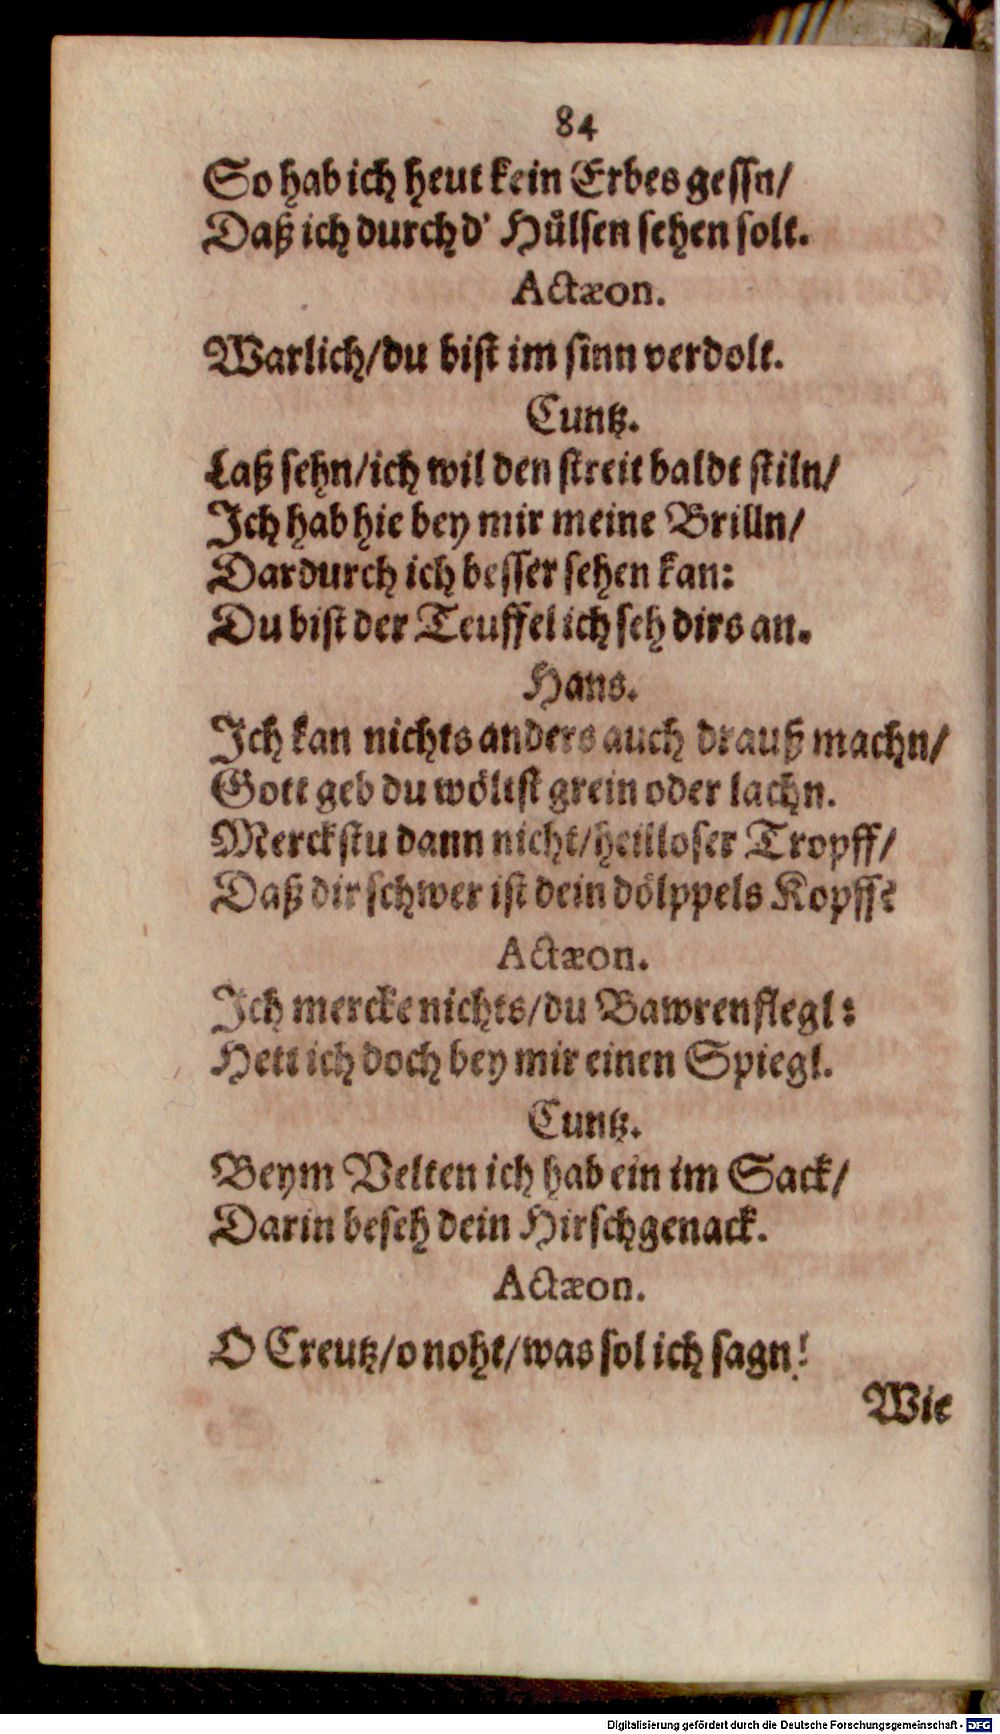 84
So hab ich heut kein Erbes gessn/
Daß ich durch d' Huͤlsen sehen solt.
Actæon.
Warlich/du bist im sinn verdolt.
Cuntz.
Laß sehn/ich wil den streit baldt stiln/
Ich hab hie bey mir meine Brilln/
Dardurch ich besser sehen kan:
Du bist der Teuffel ich seh dirs an.
Hans.
Ich kan nichts anders auch drauß machn/
Gott geb du woͤltst grein oder lachn.
Merckstu dann nicht/heilloser Tropff/
Daß dir schwer ist dein doͤlppels Kopff?
Actæon.
Ich mercke nichts/du Bawrenflegl:
Hett ich doch bey mir einen Spiegl.
Cuntz.
Beym Velten ich hab ein im Sack/
Darin beseh dein Hirschgenack.
Actæon.
O Creutz/o noht/was sol ich sagn!
Wie
Digitalisierung gefördert durch die Deutsche Forschungsgemeinschaft - DFG